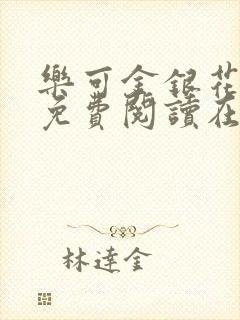 樂可金銀花
免費閱讀在
林達金